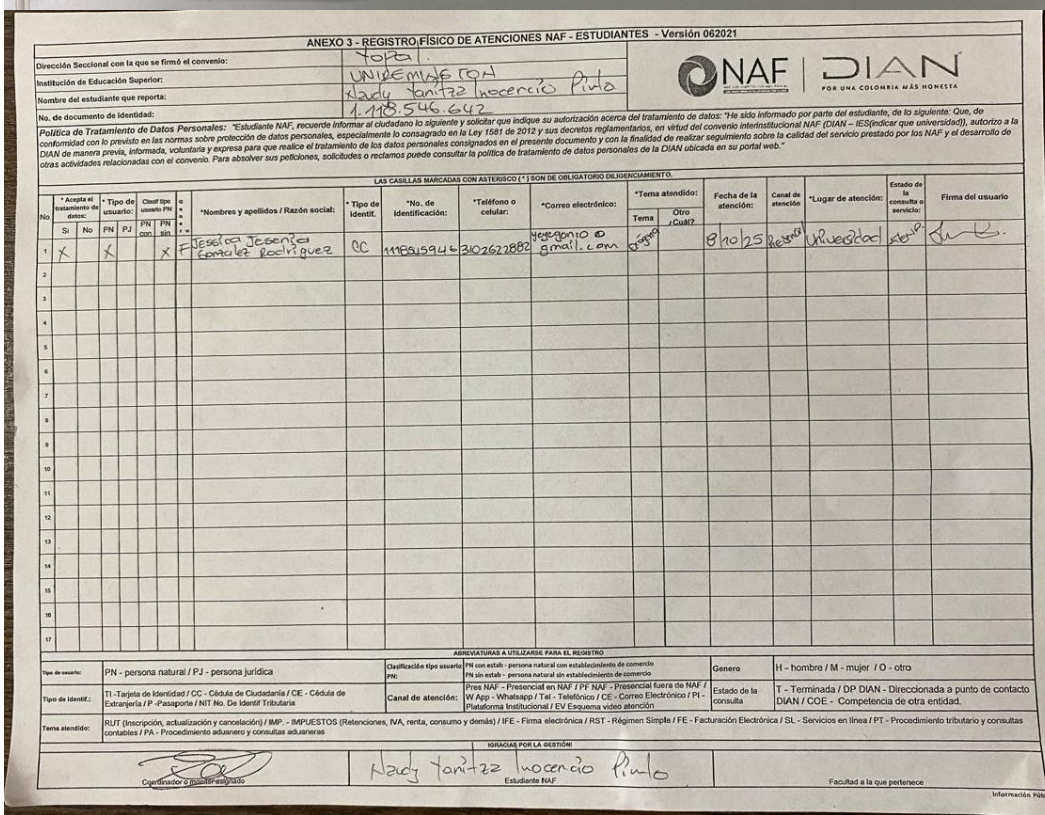 ANEXO 3 - REGISTRO FÍSICO DE ATENCIONES NAF - ESTUDIANTES - Versión 062021
Dirección Seccional con la que se firmó el convenio: Yopal.
Institución de Educación Superior: UNIREMINGTON
Nombre del estudiante que reporta: Nardy Yanitza Inocencio Pinto
No. de documento de Identidad: 1.118.546.642
NAF | DIAN
POR UNA COLOMBIA MÁS HONESTA
Política de Tratamiento de Datos Personales: "Estudiante NAF, recuerde informar al ciudadano lo siguiente y solicitar que indique su autorización acerca del tratamiento de datos: "He sido informado por parte del estudiante, de lo siguiente: Que, de
conformidad con lo previsto en las normas sobre protección de datos personales, especialmente lo consagrado en la Ley 1581 de 2012 y sus decretos reglamentarios, en virtud del convenio interinstitucional NAF (DIAN – IES(indicar que universidad)), autorizo a la
DIAN de manera previa, informada, voluntaria y expresa para que realice el tratamiento de los datos personales consignados en el presente documento y con la finalidad de realizar seguimiento sobre la calidad del servicio prestado por los NAF y el desarrollo de
otras actividades relacionadas con el convenio. Para absolver sus peticiones, solicitudes o reclamos puede consultar la política de tratamiento de datos personales de la DIAN ubicada en su portal web."
LAS CASILLAS MARCADAS CON ASTERISCO (*) SON DE OBLIGATORIO DILIGENCIAMIENTO.
No. * Acepta el tratamiento de datos: * Tipo de usuario: Clasif tipo usuario PN *Nombres y apellidos / Razón social: * Tipo de Identif. *No. de Identificación: *Teléfono o celular: *Correo electrónico: *Tema atendido: Fecha de la atención: Canal de atención *Lugar de atención: Estado de la consulta o servicio: Firma del usuario
Si No PN PJ PN con PN sin Tema Otro ¿Cuál?
1 X X X F Jessica Jesenia Gonzalez Rodriguez CC 1118545946 3102622882 yeyegonro@gmail.com 8/10/25 Universidad
2
3
4
5
6
7
8
9
10
11
12
13
14
15
16
17
ABREVIATURAS A UTILIZARSE PARA EL REGISTRO
Tipo de usuario: PN - persona natural / PJ - persona jurídica
Clasificación tipo usuario PN: PN con estab - persona natural con establecimiento de comercio
PN sin estab - persona natural sin establecimiento de comercio
Genero H - hombre / M - mujer / O - otro
Tipo de Identif.: TI -Tarjeta de Identidad / CC - Cédula de Ciudadanía / CE - Cédula de
Extranjería / P -Pasaporte / NIT No. De Identif Tributaria
Canal de atención: Pres NAF - Presencial en NAF / PF NAF - Presencial fuera de NAF /
W App - Whatsapp / Tel - Telefónico / CE - Correo Electrónico / PI -
Plataforma Institucional / EV Esquema video atención
Estado de la consulta T - Terminada / DP DIAN - Direccionada a punto de contacto
DIAN / COE - Competencia de otra entidad.
Tema atendido: RUT (Inscripción, actualización y cancelación) / IMP. - IMPUESTOS (Retenciones, IVA, renta, consumo y demás) / IFE - Firma electrónica / RST - Régimen Simple / FE - Facturación Electrónica / SL - Servicios en línea / PT - Procedimiento tributario y consultas
contables / PA - Procedimiento aduanero y consultas aduaneras
¡GRACIAS POR LA GESTIÓN!
Nardy Yanitza Inocencio Pinto
Coordinador o monitor asignado Estudiante NAF Facultad a la que pertenece
Información Púb